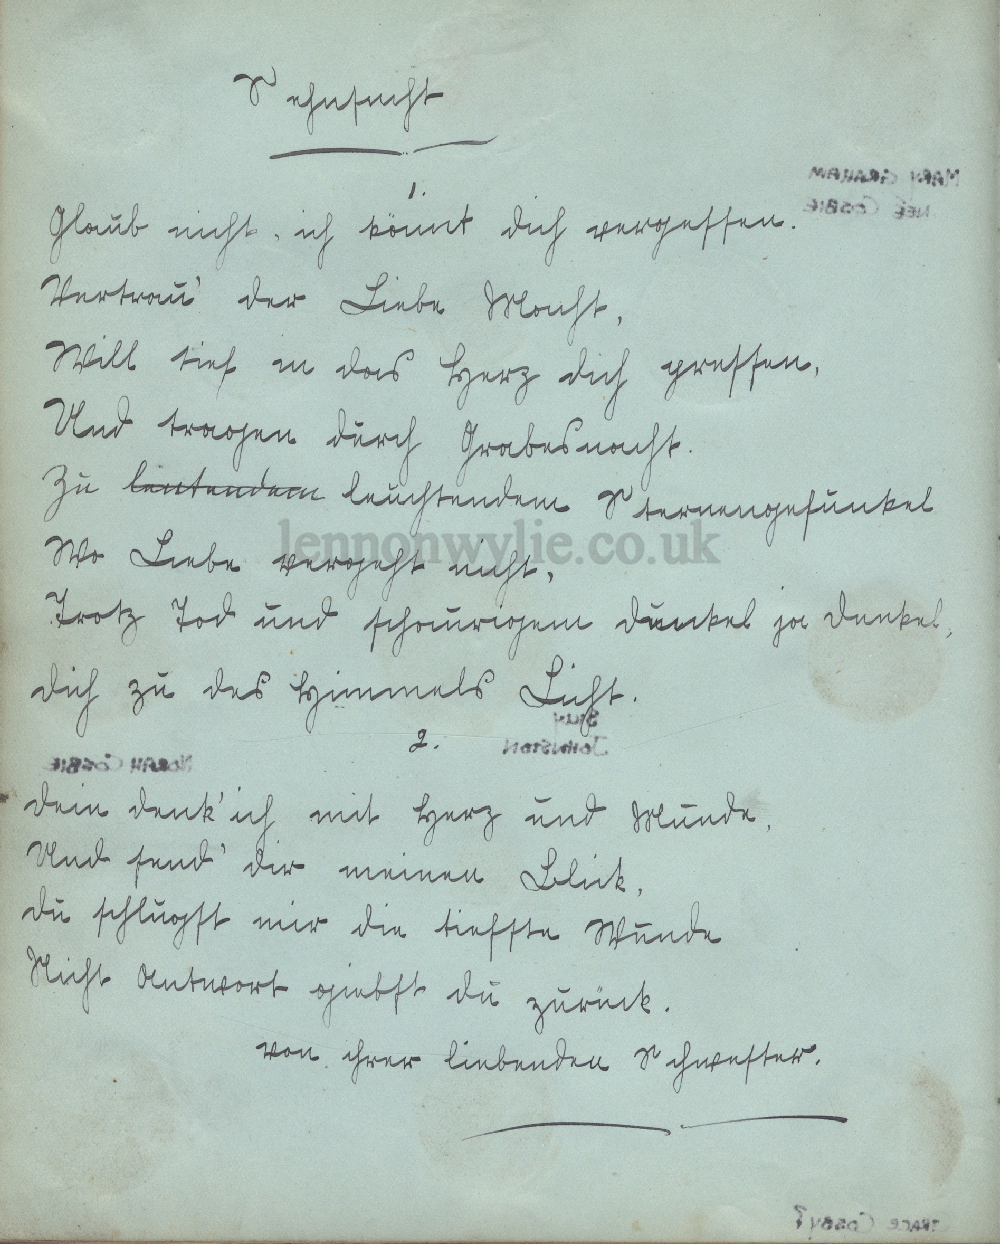 Sehnsucht
1.
Glaub nicht, ich könnt dich vergessen.
Vertrau' der Liebe Macht,
Will tief in das Herz dich pressen,
Und tragen durch Grabesnacht.
Zu leutendem leuchtendem Sternengefunkel
Wo Liebe vergeht nicht,
Trotz Tod und schaurigem dunkel ja Dunkel,
dich zu des Himmels Licht.
2.
dein denk' ich mit Herz und Munde,
Und send' dir meinen Blick,
du schlugst mir die tiefste Wunde
Nicht Antwort giebst du zurück.
von ihrer liebenden Schwester.
MARY GRAHAM
NEÉ COSBIE
BILLY
JOHNSTON
NORAH COSBIE
GRACE COSBY?
lennonwylie.co.uk